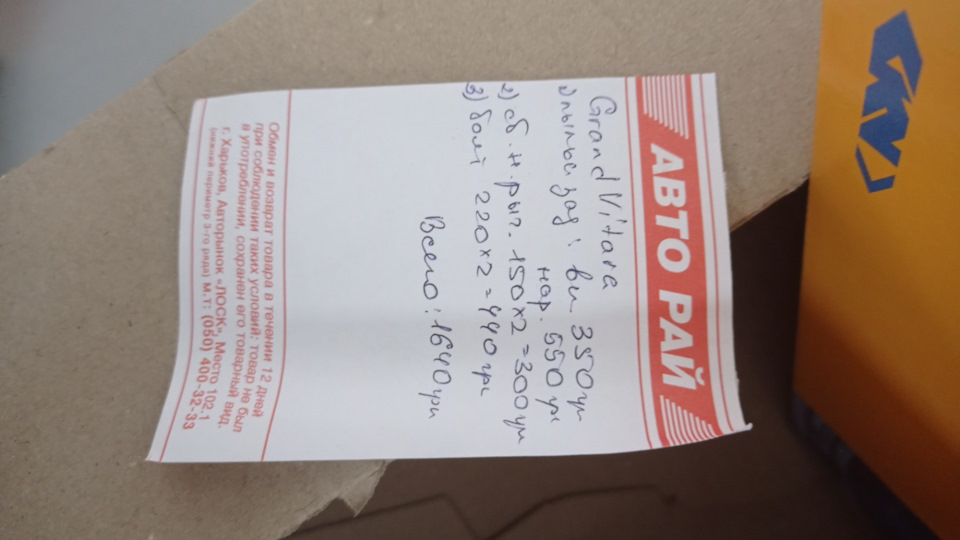 АВТО РАЙ
Grand Vitara
1) пыльс зад: вн 350 грн
нар. 550 гр
2) сб. н. рыч. 150x2=300 грн
3) болт 220x2=440 грн
Всего: 1640 грн
Обмен и возврат товара в течении 12 дней
при соблюдении таких условий: товар не был
в употреблении, сохранен его товарный вид.
г. Харьков, Авторынок «ЛОСК», Место 102.1
(нижний периметр 3-го ряда) м.т: (050) 400-32-33